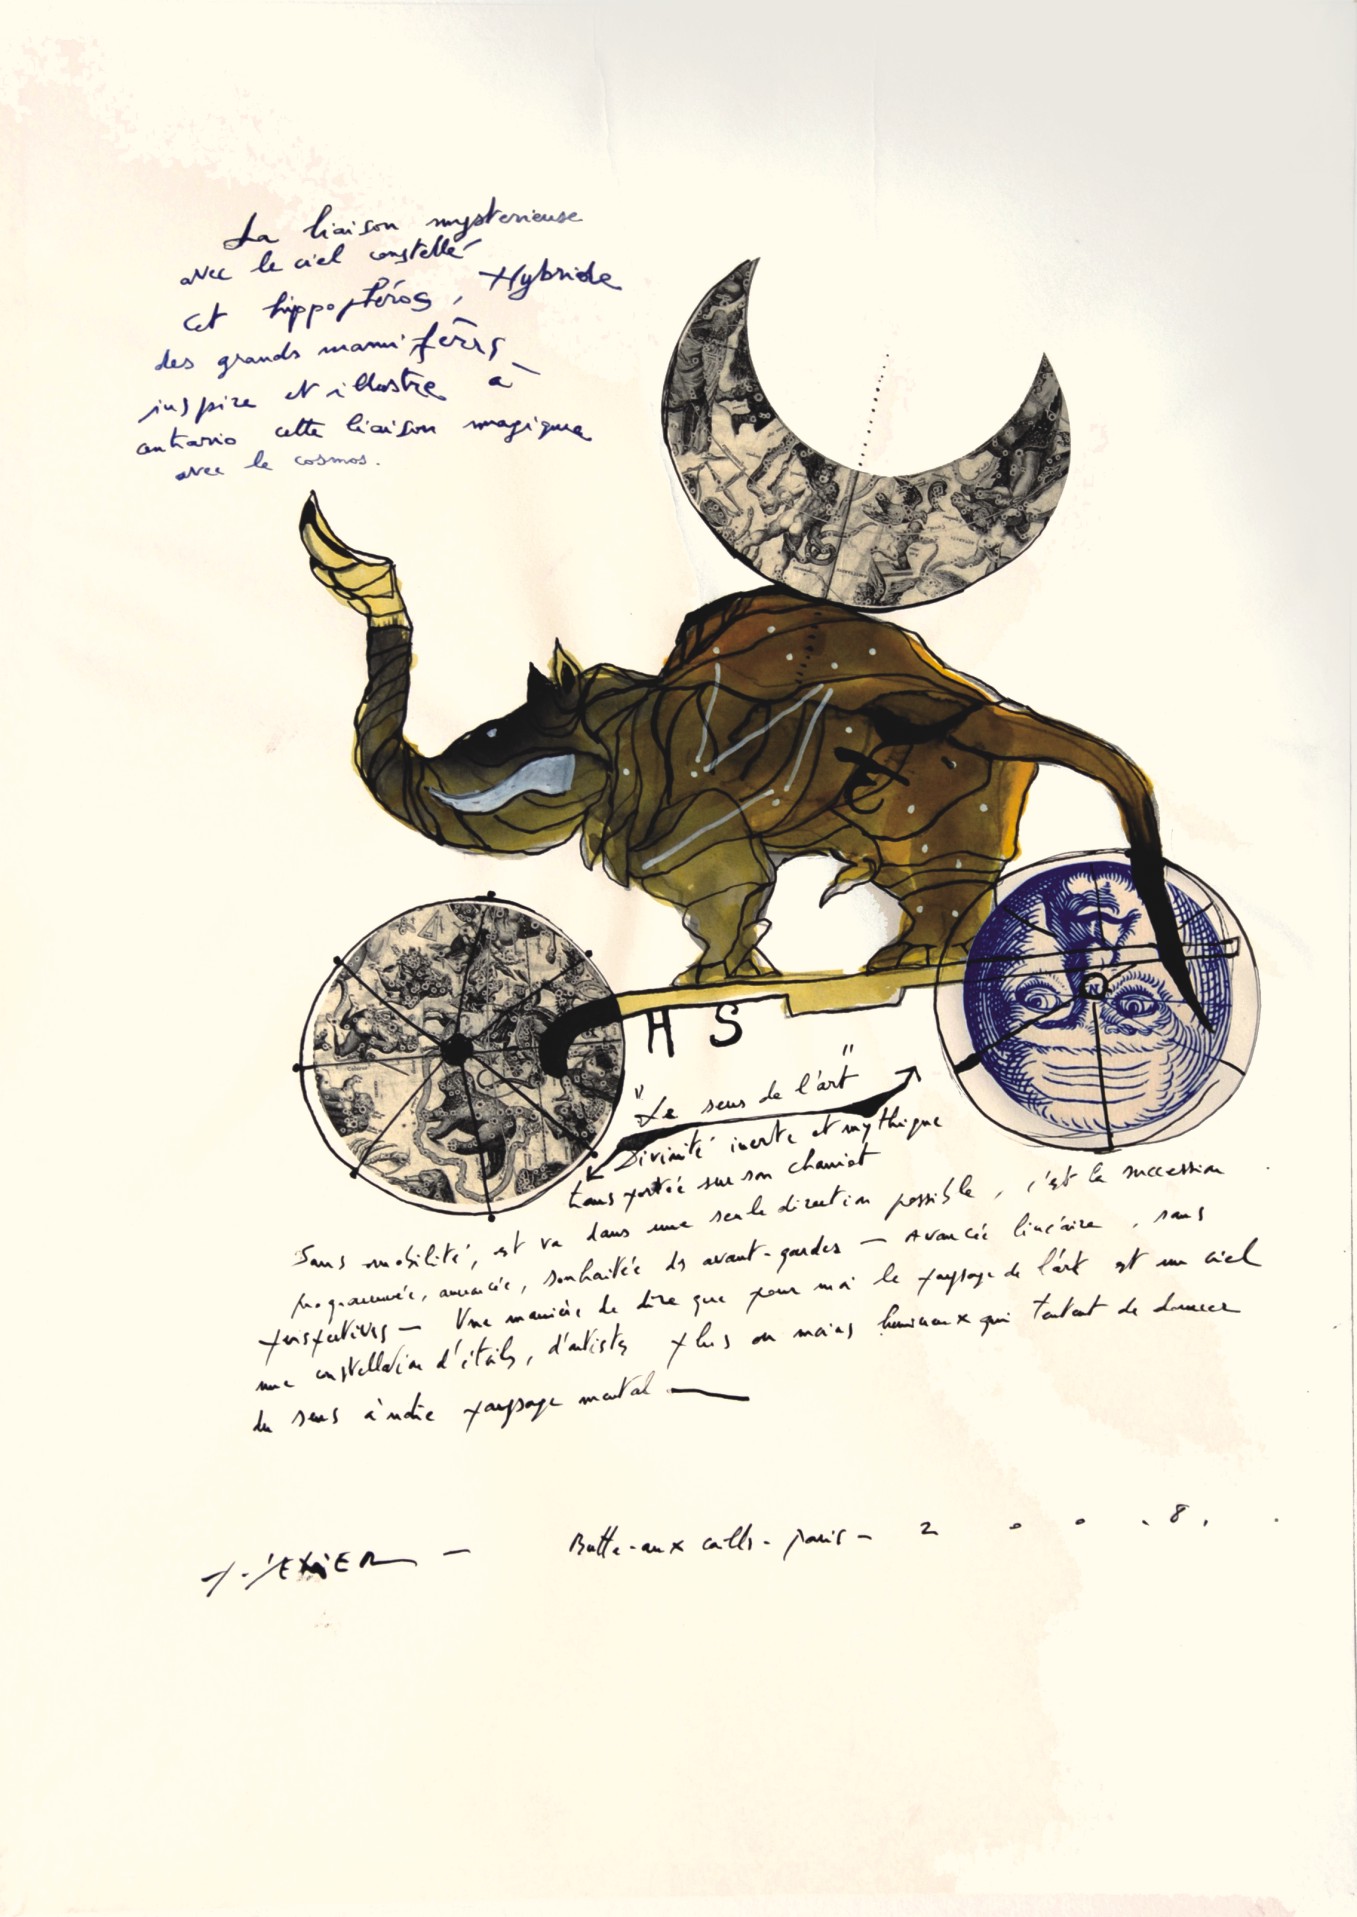 La liaison mysterieuse
avec le ciel constellé
cet hippoptéros, Hybride
des grands mammifères
inspire et illustre à
contrario cette liaison magique
avec le cosmos.
H S
N
"Le sens de l'art"
Divinité inerte et mythique
transportée sur son chariot
Sans mobilité, et va dans une seule direction possible, c'est la succession
programmée, annoncée, souhaitée des avant-gardes — Avancée linéaire, sans
perspectives — Une manière de dire que pour moi le paysage de l'art est un ciel
une constellation d'étoiles, d'artistes plus ou moins lumineux qui tentent de donner
du sens à notre paysage mental —
TEXIER — Butte-aux cailles - paris - 2 0 0 . 8 .